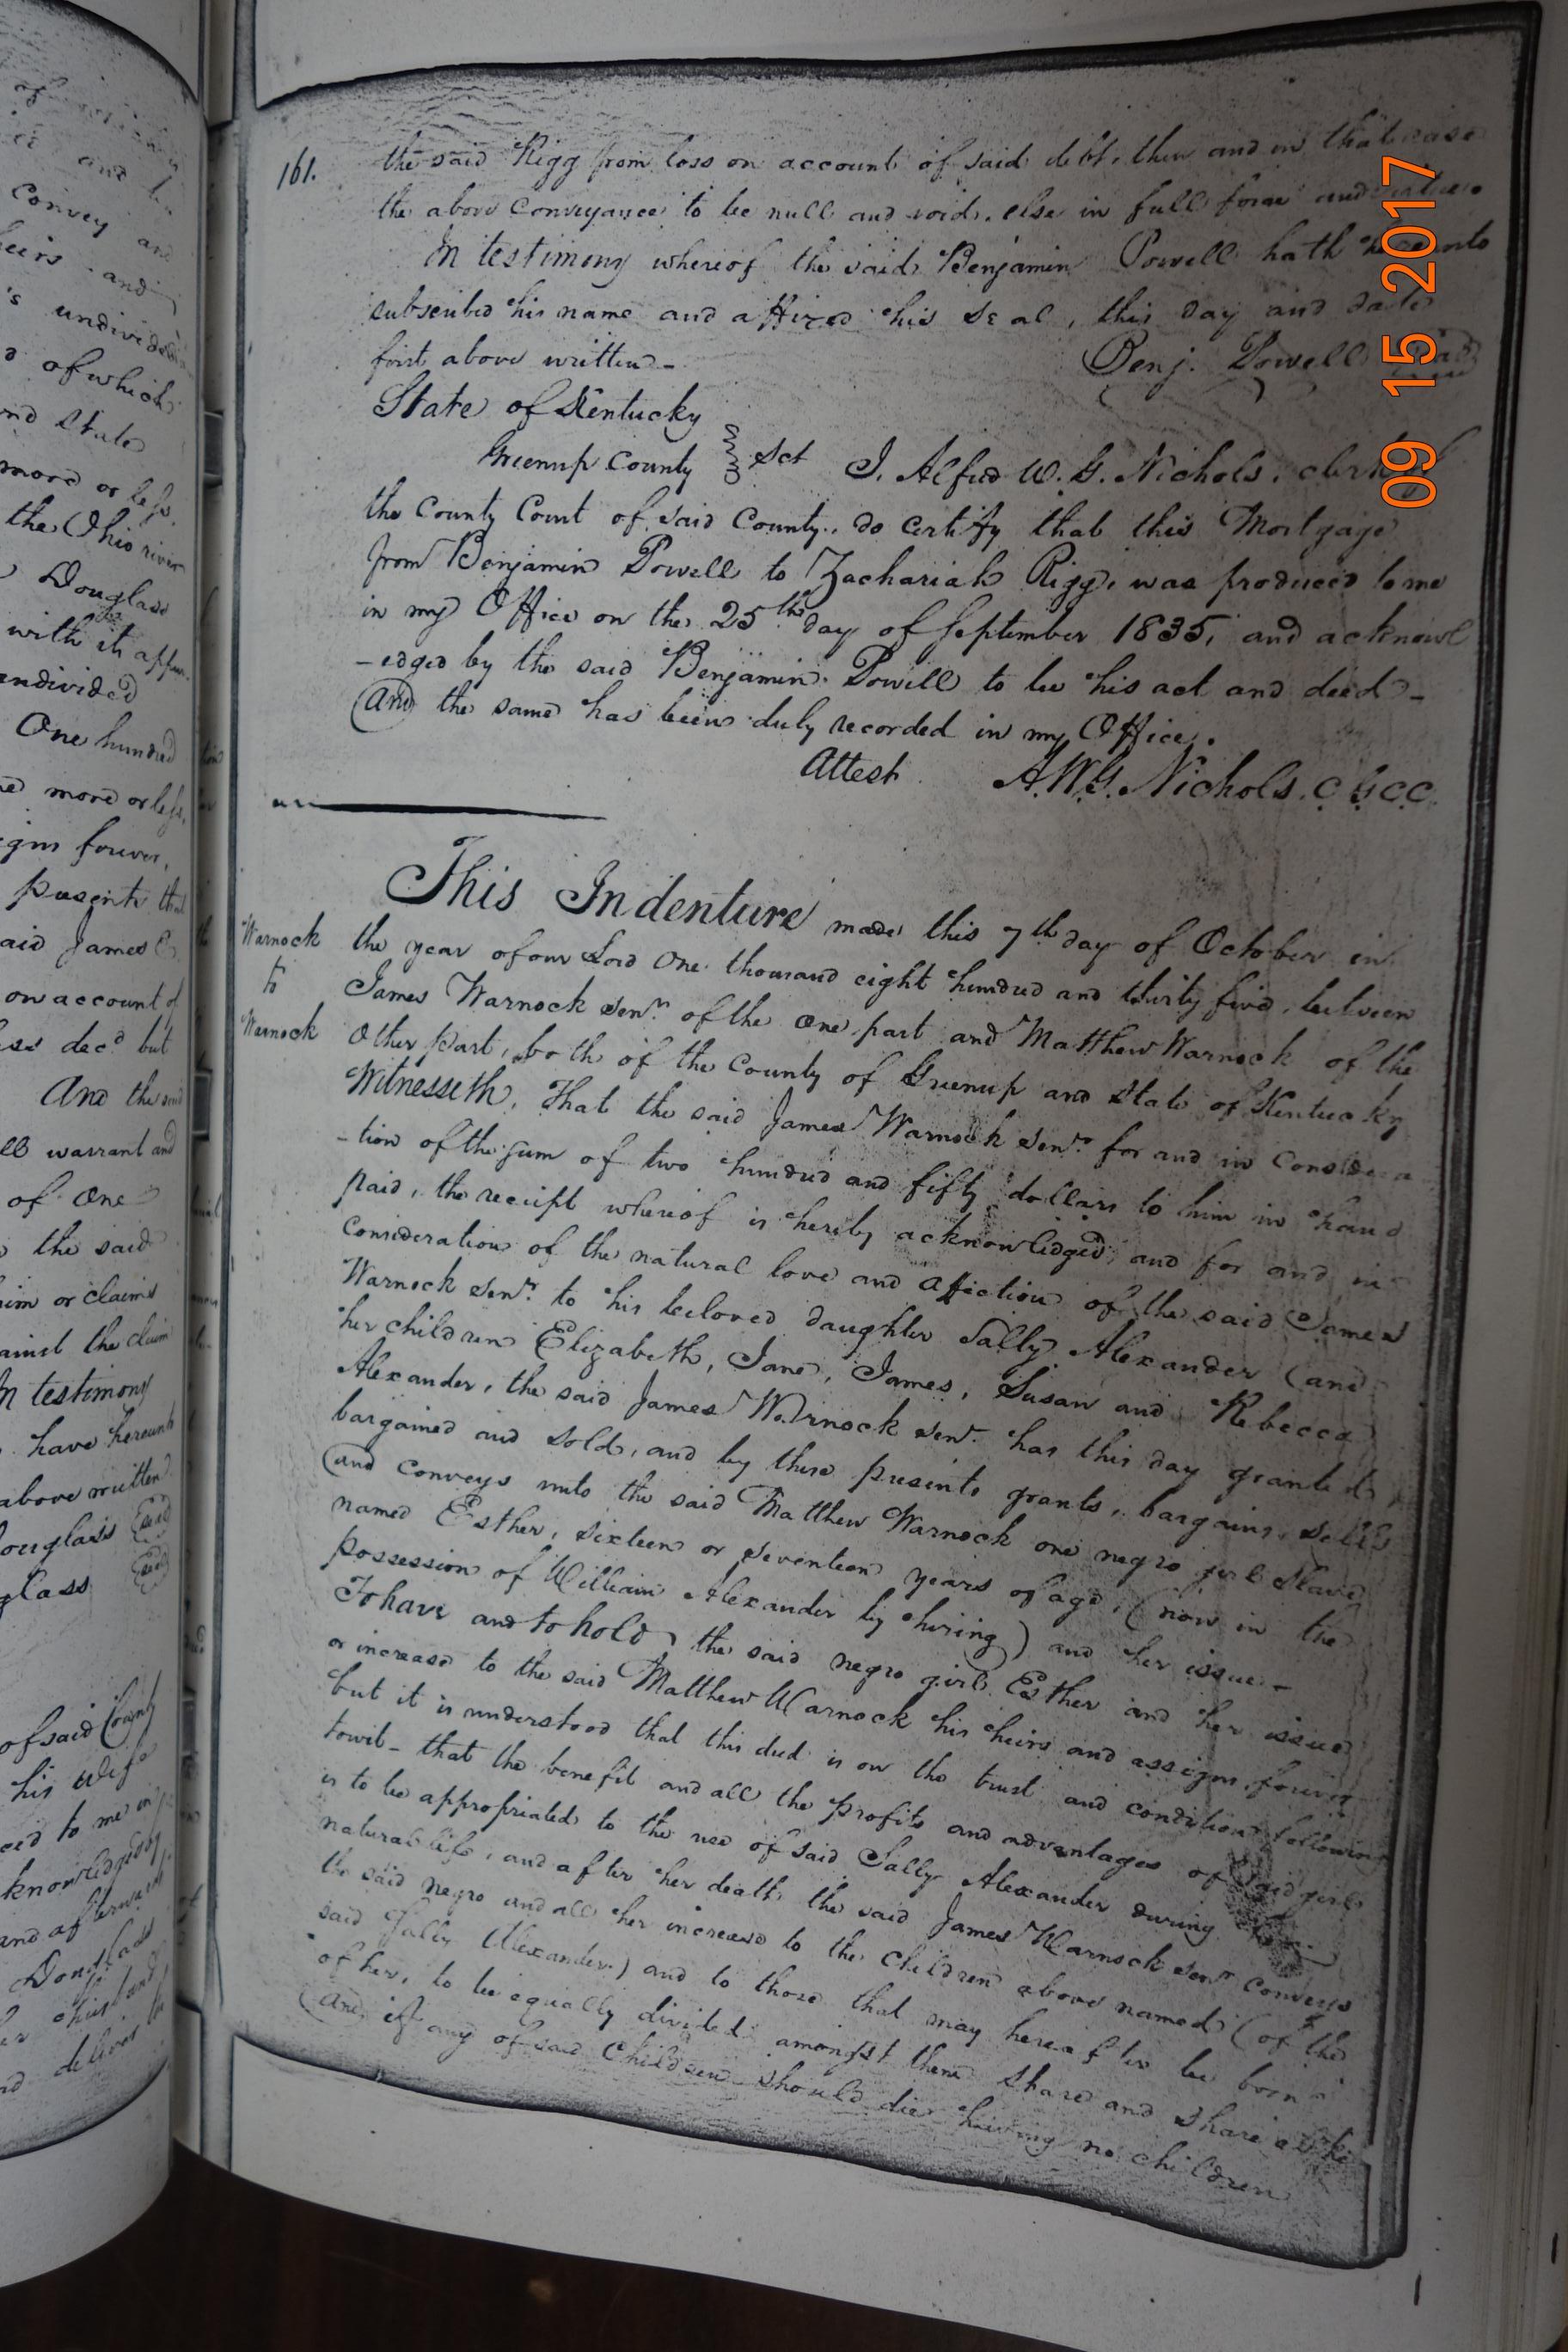 of
and
Convey and
heirs and
's undivided
d of which
and State
more or less.
the Ohio river
Douglass
with its appur
undivided
One hundred
more or less,
forever,
presents that
said James
on account of
decd but
And the said
warrant and
of One
the said
him or claims
against the claim
In testimony
have hereunto
above written
Douglass Seal
Seal
of said County
his wife
to me in
and afterwards
Douglass
her husband
deliver
161.
the said Rigg from loss on account of said debt, then and in that case
the above Conveyance to be null and void, else in full force and virtue.
In testimony whereof the said Benjamin Powell hath hereunto
subscribed his name and affixed his seal, this day and date
first above written -
Benj. Powell Seal
State of Kentucky
Greenup County } Sct I, Alfred W. G. Nichols, clerk of
the County Court of said County, do certify that this Mortgage
from Benjamin Powell to Zachariah Rigg, was produced to me
in my Office on the 25th day of September 1835, and acknowl
-edged by the said Benjamin Powell to be his act and deed -
And the same has been duly recorded in my Office.
Attest A.W.G. Nichols. C G C C.
Warnock
to
Warnock
This Indenture made this 7th day of October in
the year of our Lord One thousand eight hundred and thirty five, between
James Warnock Senr. of the One part and Matthew Warnock of the
Other part, both of the County of Greenup and State of Kentucky
Witnesseth, That the said James Warnock Senr. for and in Considera
-tion of the sum of two hundred and fifty dollars to him in hand
paid, the receipt whereof is hereby acknowledged, and for and in
consideration of the natural love and affection of the said James
Warnock Senr. to his beloved daughter Sally Alexander (and
her children Elizabeth, Jane, James, Susan and Rebecca
Alexander, the said James Warnock Senr. has this day granted
bargained and sold, and by these presents grants, bargains, sells
and conveys unto the said Matthew Warnock one negro girl Slave,
named Esther, sixteen or seventeen years of age, (now in the
possession of William Alexander by hiring) and her issue -
To have and to hold, the said negro girl Esther and her issue
or increase to the said Matthew Warnock his heirs and assigns forever
but it is understood that this deed is on the trust and condition following
towit - that the benefit and all the profits and advantages of said girl
is to be appropriated to the use of said Sally Alexander during
natural life, and after her death the said James Warnock Senr. conveys
the said negro and all her increase to the children above named (of the
said Sally Alexander) and to those that may hereafter be born
of her, to be equally divided amongst them share and share alike
And if any of said Children should die having no children
09 15 2017